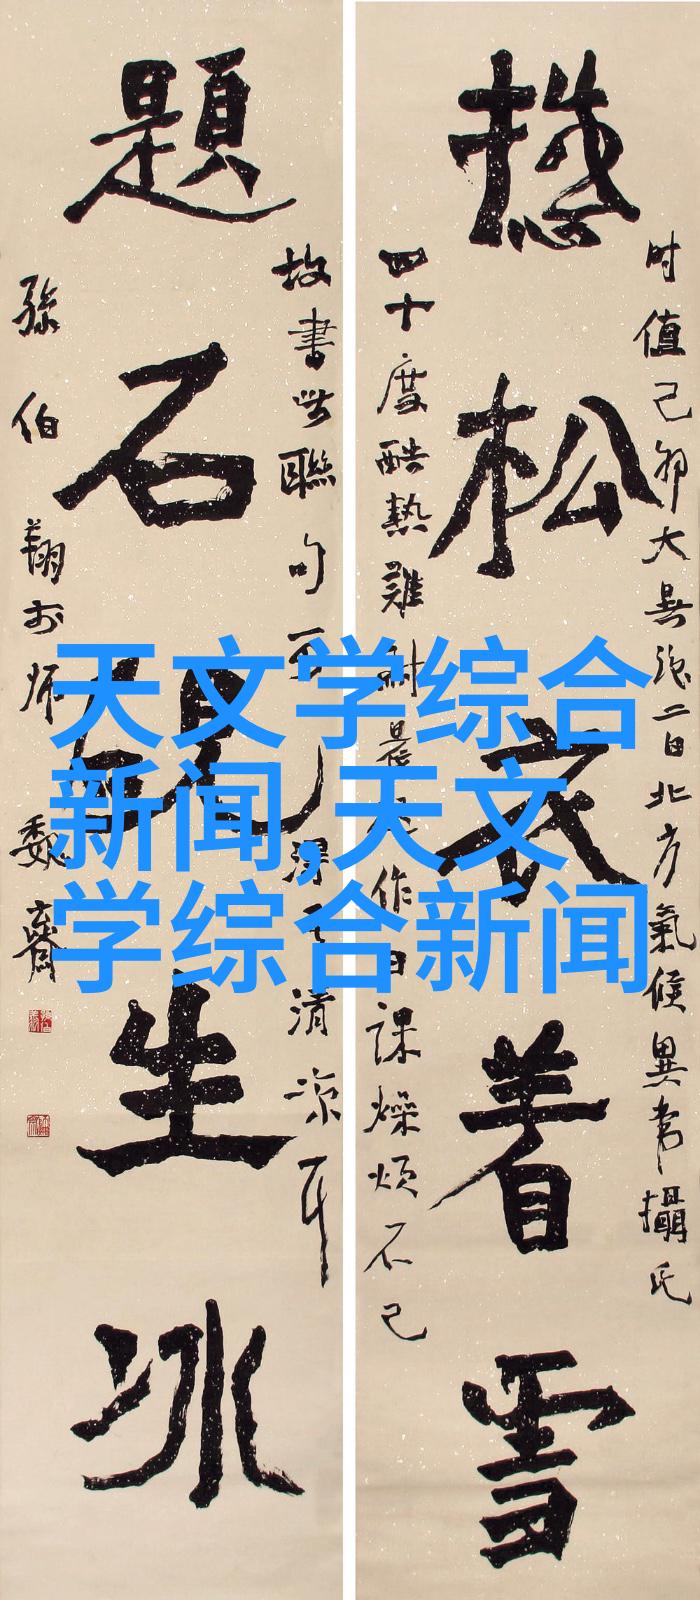 时值己卯大暑後二日北方氣候異常攝氏
松衣着雪
四十度酷熱難耐晨起作日課燥煩不已
故書此聯句可清凉耳
題石硯生冰
孫伯翔於师魏齋
天文学综合
新闻,天文
学综合新闻